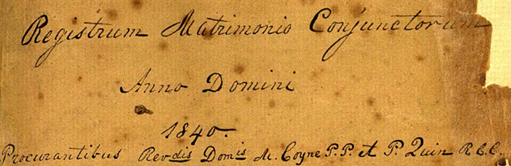 Registrum Matrimonio Conjunctorum
Anno Domini
1840.
Procurantibus Revdis Domis M. Coyne P.P. et P. Quin R.C.C.